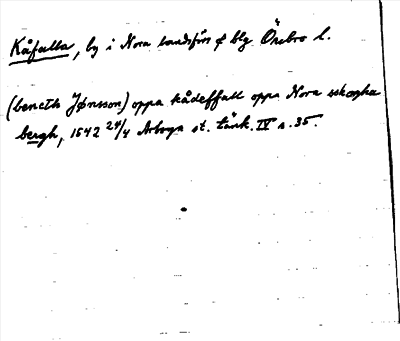 Kåfalla, by i Nora landsförs. o blg Örebro l.
(benckth Jönsson) oppa kådeffall oppa Nora skogha
bergh, 1542 24/4 Arboga st. tänk. IV s. 35.